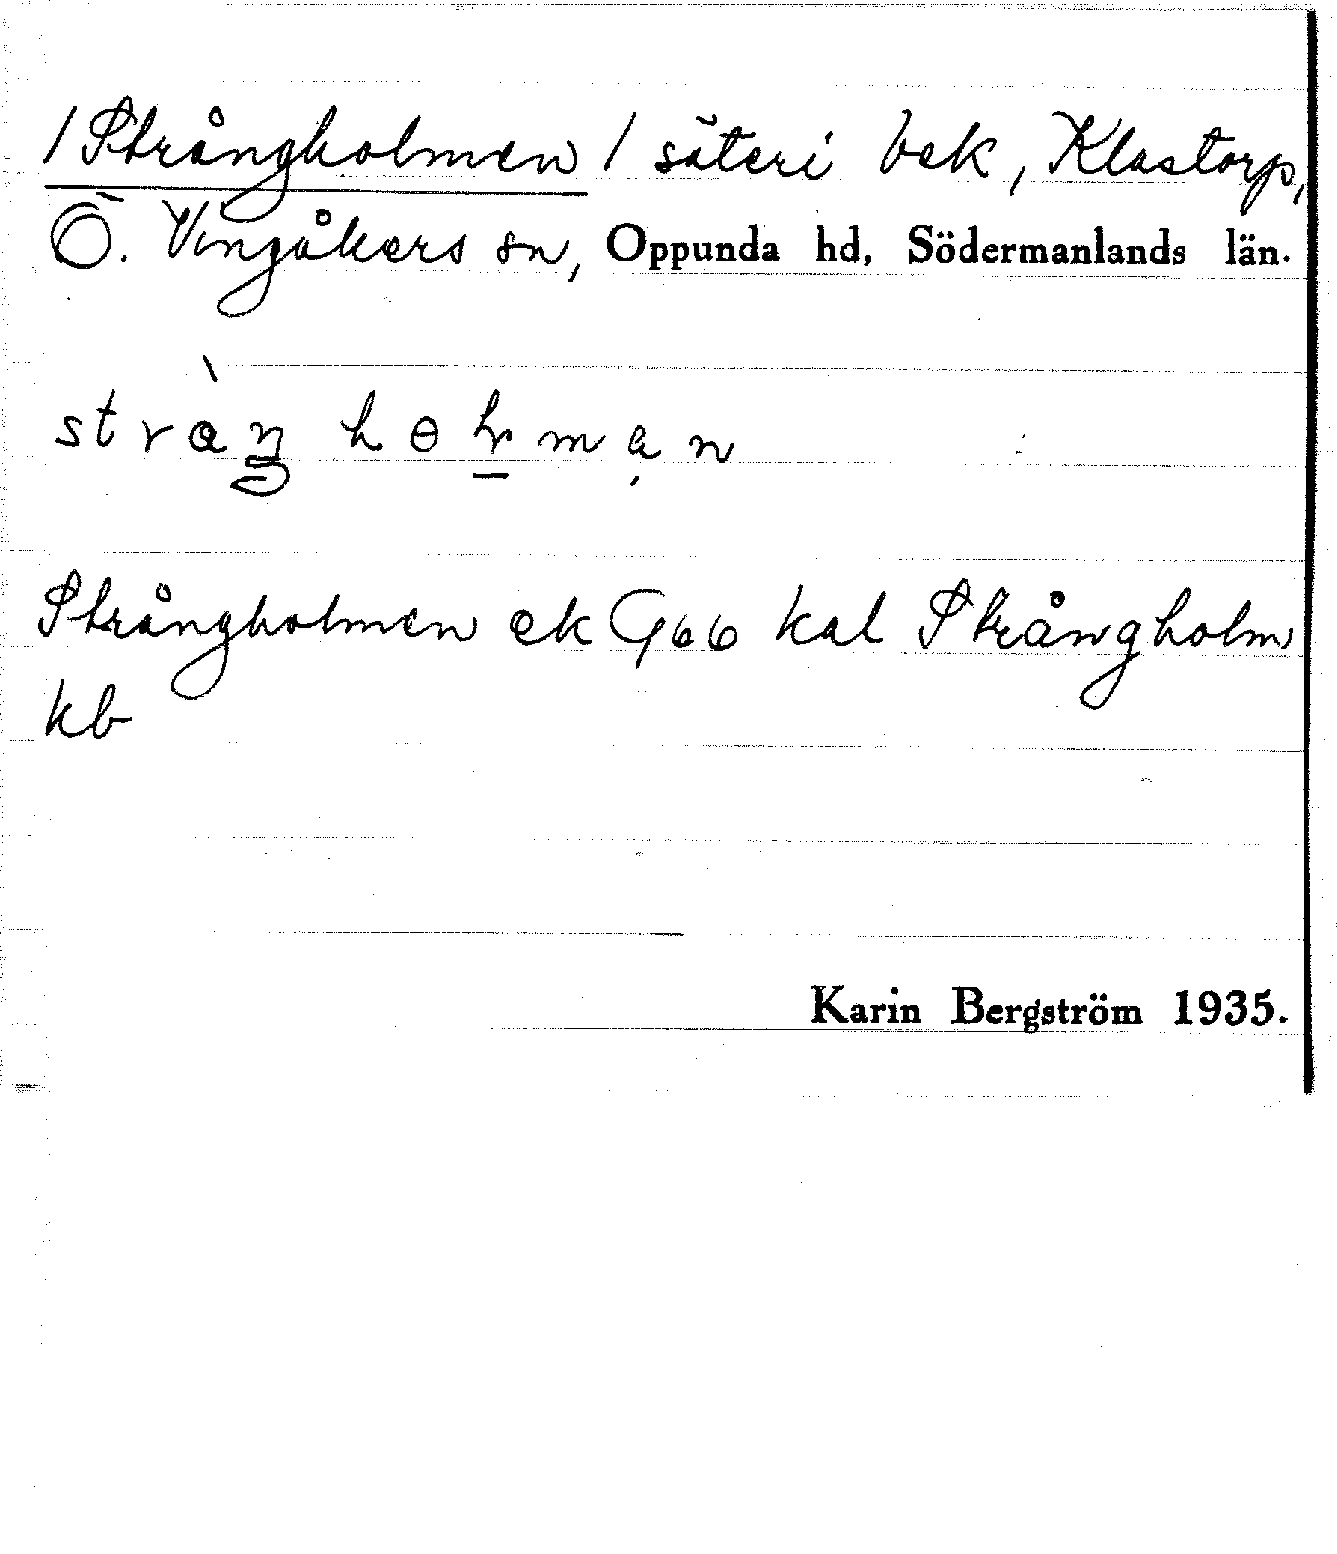 /Strångholmen/ säteri bek, Klastorp,
Ö. Vingåkers sn, Oppunda hd, Södermanlands län.
Strångholmen ek G66 kal Strångholm
kb
Karin Bergström 1935.